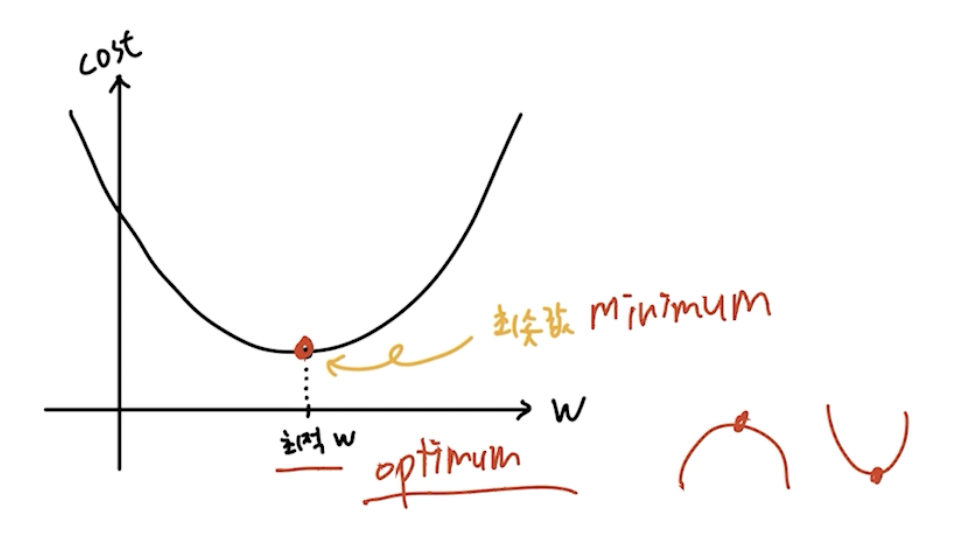 cost
최솟값 minimum
W
최적 W
optimum